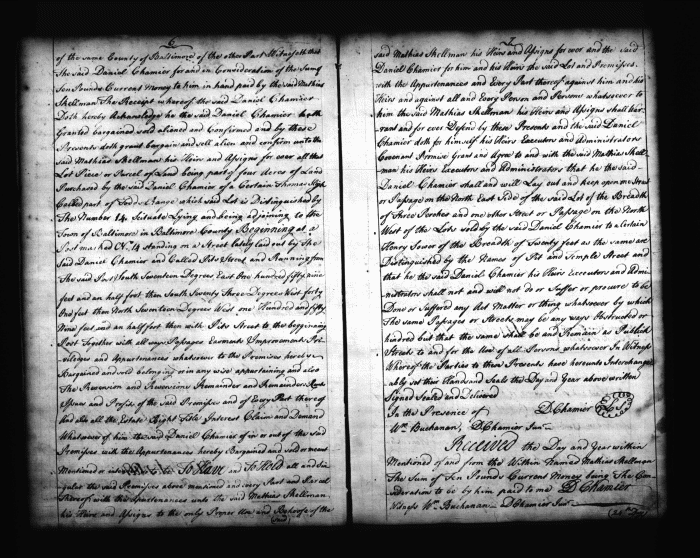 6
of the same County of Baltimore of the other Part Witnesseth that
The said Daniel Chamier for and in Consideration of the Sum of
Ten Pounds Current Money to him in hand paid by the said Mathias
Shellman The Receipt whereof the said Daniel Chamier
Doth hereby Acknowledge he the said Daniel Chamier hath
Granted bargained sold aliened and Confirmed and by these
Presents doth grant bargain and sell alien and confirm unto the
said Mathias Shellman his Heirs and Assigns for ever all that
Lot Piece or Parcel of Land being part of four Acres of Land
Purchased by the said Daniel Chamier of a Certain Thomas
Called part of Todds Range which said Lot is Distinguished by
The Number 14 Situate Lying and being adjoining to the
Town of Baltimore in Baltimore County Beginning at a
Post marked No. 14 standing on a Street lately laid out by the
said Daniel Chamier and Called Pitt Street and Running from
the said Post South Seventeen Degrees East One hundred fifty nine
feet and an half foot then South Seventy Three Degrees West forty
One feet then North Seventeen Degrees West one Hundred and fifty
Nine feet and an half foot then with Pitt Street to the beginning
Post Together with all ways Passages Easments Improvements Pri-
viledges and Appurtenances whatsoever to the Premises hereby
Bargained and sold belonging or in any wise appertaining and also
The Reversion and Reversions Remainder and Remainders Rents
Issues and Profits of the said Premises and of Every Part thereof
And also all the Estate Right Title Interest Claim and Demand
Whatsoever of him the said Daniel Chamier of in or out of the said
Premises with the Appurtenances hereby Bargained and sold or meant
Mentioned or intended To Have and To Hold all and Sin-
gular the said Premises above mentioned and every Part and Parcel
Thereof with the Appurtenances unto the said Mathias Shellman
his Heirs and Assigns to the only Proper Use and Behoofe of the
(said)
7
said Mathias Shellman his Heirs and Assigns for ever and the said
Daniel Chamier for him and his Heirs the said Lot and Premises
with the Appurtenances and Every Part thereof against him and his
Heirs and against all and Every Person and Persons whatsoever to
him the said Mathias Shellman his Heirs and Assigns shall War-
rant and for ever Defend by these Presents and the said Daniel
Chamier doth for himself his Heirs Executors and Administrators
Covenant Promise Grant and Agree to and with the said Mathias Shell-
man his Heirs Executors and Administrators that he the said
Daniel Chamier shall and will Lay out and keep open one Street
or Passage on the North East Side of the said Lot of the Breadth
of Three Perches and one other Street or Passage on the North
West of the Lots sold by the said Daniel Chamier to a Certain
Henry Sower of the Breadth of Twenty feet as the same are
Distinguished by the Names of Pitt and Temple Street and
that he the said Daniel Chamier his Heirs Executors and Admi-
nistrators shall not and will not do or Suffer or procure to be
Done or Suffered any Act Matter or thing whatsoever by which
The same Passages or Streets may be any ways Obstructed or
hindred but that the same shall be and Remain as Publick
Streets to and for the Use of all Persons whatsoever In Witness
Whereof the Parties to these Presents have hereunto Interchange-
ably set their Hands and Seals the Day and Year above written
Signed Sealed and Delivered
In the Presence of D Chamier
Wm. Buchanan, D Chamier Junr.
Received the Day and Year within
Mentioned of and from the Within Named Mathias Shellman
The Sum of Ten Pounds Current Money being The Con-
sideration to be by him paid to me D Chamier
Witness Wm. Buchanan D Chamier Junr.